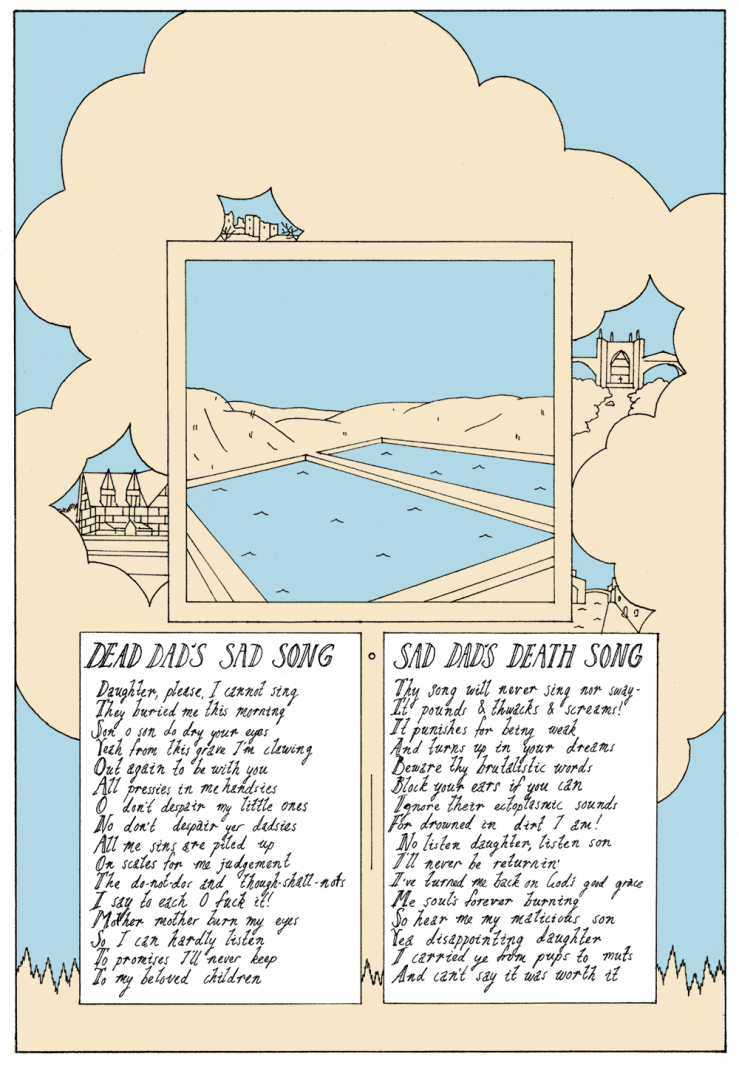 DEAD DAD'S SAD SONG
Daughter, please, I cannot sing
They buried me this morning
Son o son do dry your eyes
Yeah from this grave I'm clawing
Out again to be with you
All pressies in me handsies
O don't despair my little ones
No don't despair yer dadsies
All me sins are piled up
On scales for me judgement
The do-not-dos and though-shall-nots
I say to each O fuck it!
Mother mother burn my eyes
So I can hardly listen
To promises I'll never keep
To my beloved children
SAD DAD'S DEATH SONG
Thy song will never sing nor sway-
It pounds & thwacks & screams!
It punishes for being weak
And turns up in your dreams
Beware thy brutalistic words
Block your ears if you can
Ignore their ectoplasmic sounds
For drowned in dirt I am!
No listen daughter, listen son
I'll never be returnin'
I've turned me back on God's good grace
Me soul's forever burning
So hear me my malicious son
Yea disappointing daughter
I carried ye from pups to muts
And can't say it was worth it